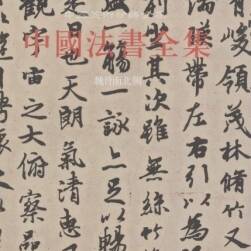 中國法書全集
魏晉南北朝
峻領茂林脩竹又
湍暎帶左右引以為
列坐其次雖無絲竹
盛一觴一詠亦足以暢
是日也天朗氣清惠
觀宇宙之大俯察品
以遊目騁懷